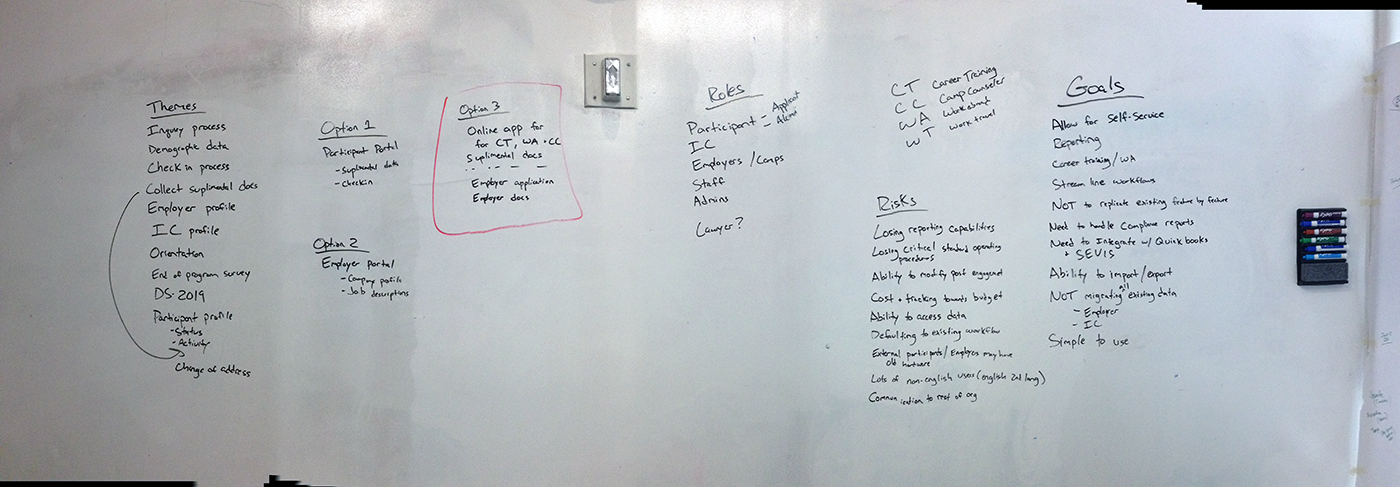 Themes
Inquiry process
Demographic data
Check in process
Collect suplimental docs
Employer profile
IC profile
Orientation
End of program survey
DS-2019
Participant profile
- Status
- Activity
Change of address
Option 1
Participant Portal
- suplmental data
- checkin
Option 2
Employer portal
- Company profile
- Job descriptions
Option 3
Online app for
for CT, WA + CC
Suplimental docs
Employer application
Employer docs
Roles
Participant - Applicant
- Alumni
IC
Employers / Camps
Staff
Admins
Lawyer?
CT Career Training
CC Camp Counselor
WA Work abroad
WT Work travel
Risks
Losing reporting capabilities
Losing critical standard operating
procedures
Ability to modify post engagement
Cost + tracking towards budget
Ability to access data
Defaulting to existing workflow
External participants / Employers may have
old hardware
Lots of non-english users (english 2nd lang)
Communication to rest of org
Goals
Allow for Self-Service
Reporting
Career training / WA
Stream line workflows
NOT to replicate existing feature by feature
Need to handle Compliance reports
Need to Integrate w/ Quickbooks
+ SEVIS
Ability to import/export
NOT migrating all existing data
- Employer
- IC
Simple to use